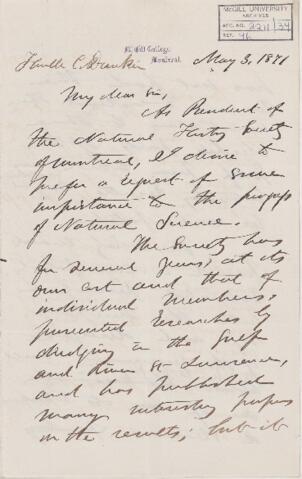 McGILL UNIVERSITY
ARCHIVES
ACC. NO. 2211/34
REF. 46
McGill College,
Montreal.
Honble C Dunkin
May 3, 1871
My dear Sir,
As President of
the Natural History Society
of Montreal, I desire to
prefer a request of some
importance to the progress
of Natural Science.
The Society has
for several years, at its
own cost and that of
individual members,
prosecuted researches by
dredging in the Gulf
and River St Lawrence,
and has published
many interesting papers
on the results; but it